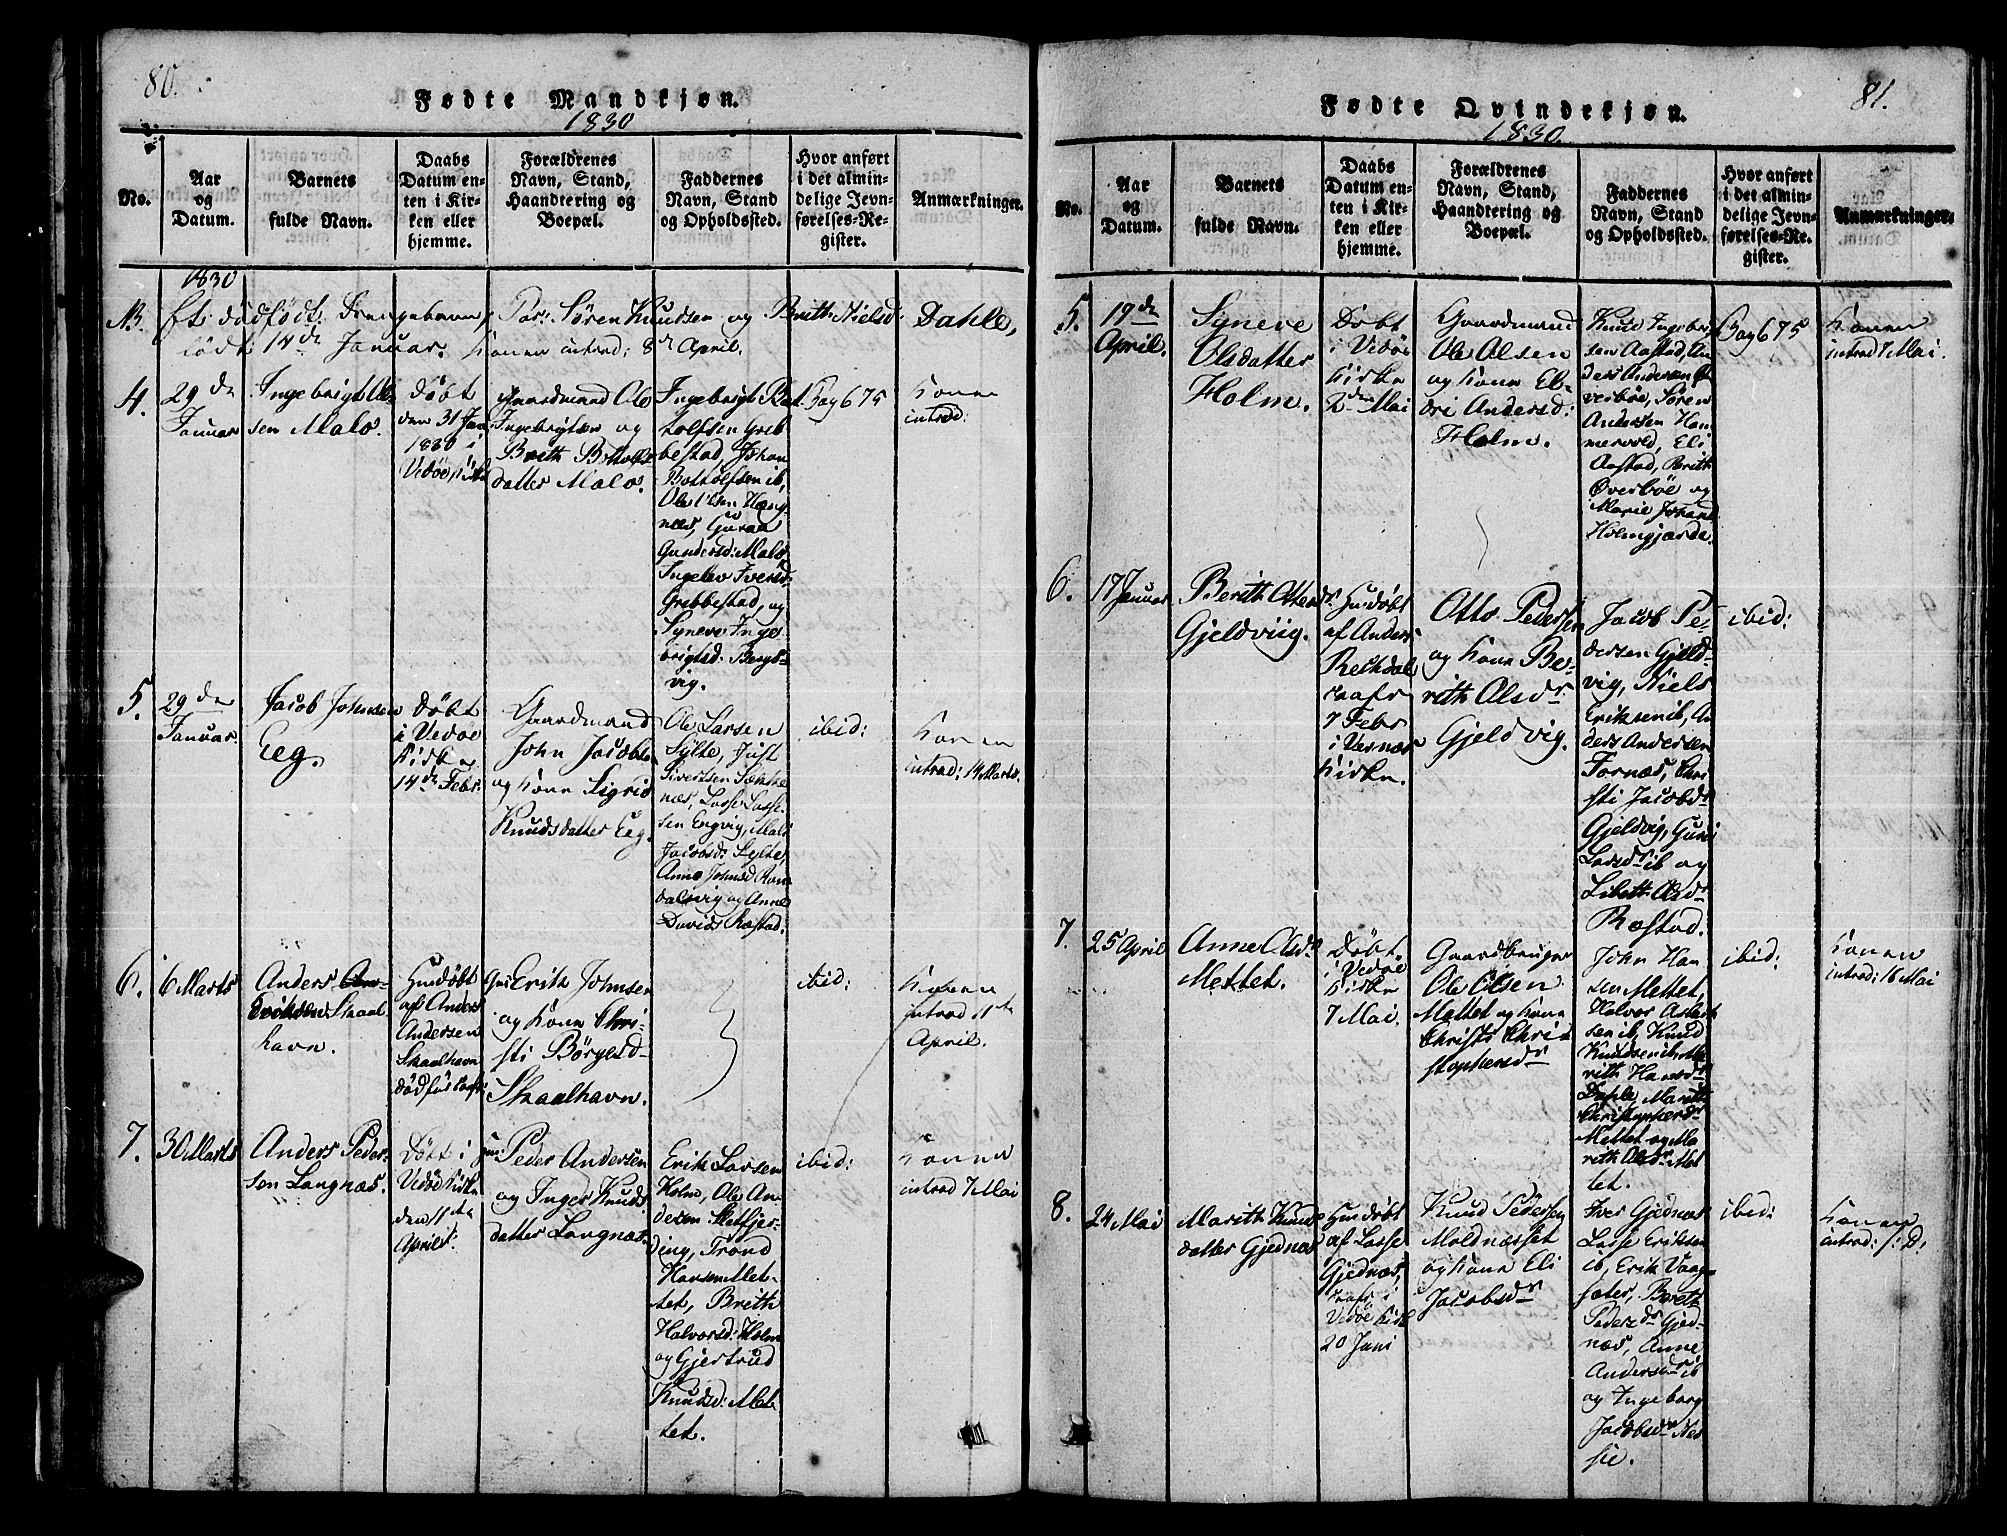 80.
Fødte Mandkjøn.
1830
No.
Aar
og
Datum.
Barnets
fulde Navn.
Daabs
Datum en-
ten i Kir-
ken eller
hjemme.
Forældrenes
Navn, Stand,
Haandtering og
Boepæl.
Faddernes
Navn, Stand
og Opholdssted.
Hvor anført
i det almin-
delige Jevn-
førelses-Re-
gister.
Anmærkninger.
1830
NB. Et dødfødt Drengebarn, Par: Søren Knudsen og Brith Nielsd: Dahle,
født 14de Januar. Konen introd: 8de April.
4.
29de
Januar
Ingebrigt Ol-
sen Malo.
Døbt
den 31 Jan
1830 i
Vedøe Kirke
Gaardmand Ole
Ingebrigtsen og
Brith Botolfs
datter Malo.
Ingebrigt Bot
holfsen Greb
bestad, Johan
Botholfsen ib,
Ole Olsen Hæng
næs, Guraa
Gundersd: Malo
Ingelev Iversd:
Grebbestad, og
Syneve Inge-
brigtsd: Bergs-
vig.
Pag 675
Konen
introd:
5.
29de
Januar.
Jacob Johnsen
Eeg.
Døbt
i Vedøe
Kirke
14de Febr.
Gaardmand
John Jacobs.
og Kone Sigrid
Knudsdatter Eeg.
Ole Larsen
Sylte, Just
Sivertsen Sække
næs, Lasse Lasse-
sen Engvig, Mali
Jacobsd: Sylte,
Anne Johnsd Ran
dalsvig og Anne
Davids Ræstad.
ibid:
Konen
introd: 14 Marts.
6.
6 Marts
Anders
Eriksen Skaal
havn.
Hmdøbt
af Anders
Andersen
Skaalhavn
død før
Gm Erik Johnsen
og Kone Chri-
sti Børgesd-
Skaalhavn.
ibid:
Konen
introd 11te
April.
7.
30 Marts
Anders Peder-
sen Langnæs.
Døbt i
Vedøe Kirke
den 11te
April.
Gm: Peder Andersen
og Inger Knuds
datter Langnæs.
Erik Larsen
Holm, Ole An-
dersen Sletfjer-
ding, Trond
Hansen Met-
tet, Brith
Halvorsd: Holm
og Gjertrud
Knudsd: Met
tet.
ibid:
Konen
introd 7 Mai
81.
Fødte Qvindekjøn.
1830.
No.
Aar
og
Datum.
Barnets
fulde Navn.
Daabs
Datum en-
ten i Kir-
ken eller
hjemme.
Forældrenes
Navn, Stand,
Haandtering og
Boepæl.
Faddernes
Navn, Stand
og Opholdssted.
Hvor anført
i det almin-
delige Jevn-
førelses-Re-
gister.
Anmærkninger.
5.
19de
April.
Syneve
Olsdatter
Holm.
Døbt
i Vedøe
Kirke
2den Mai
Gaardmand
Ole Olsen
og Kone El-
dri Andersd:
Holm.
Knud Ingebrig
sen Aastad, An
ders Andersen O
verbøe, Søren
Andersen Ham
mervold, Eli
Aastad, Brith
Overbøe og
Marie Johand
Holmgjærde.
Pag 675
Konen
introd 7 Mai.
6.
17 Januar
Berith Ottesdr
Gjeldviig.
Hmdøbt
af Anders
Rechdal
Febr
i Vernæs
Kirke.
Otto Pedersen
og Kone Be-
rith Olsdr
Gjeldvig.
Jacob Pe-
dersen Gjeld-
vig, Niels
Eriksen ib, An
ders Andersen
Tornæs, Chri-
sti Jacobsdr
Gjeldvig, Guri
Larsdr ib og
Lisbeth Olsdr
Ræstad.
ibid:
7.
25 April
Anne Olsdr
Mettet.
Døbt
i Vedøe
Kirke
7 Mai.
Gaardbruger
Ole Olsen
Mettet og Kone
Christi Chri
stophersdr
John Han
sen Mettet,
Halvor Aslak
sen ib, Knud
Knudsen ib, Ma
rith Hansdr
Dahle, Marith
Christophersdr
Mettet og Ma
rith Olsdr Met
tet.
ibid:
Konen
introd: 16 Mai
8.
24 Mai
Marith Knuds
datter Gjednæs
Hmdøbt
af Lasse
Gjednæs,
i
Vedøe Kirk
20 Juni
Knud Pedersen
Moldnæsset
og Kone Eli
Jacobsdr
Iver Gjednæs
Lasse Eriksen
ib, Erik Vaag-
sæter, Berett
Pedersdr Gjed-
næs, Anne
Andersdr ib
og Ingeborg
Jacobsdr Nes
sie.
ibid:
Konen
introd: s: D: